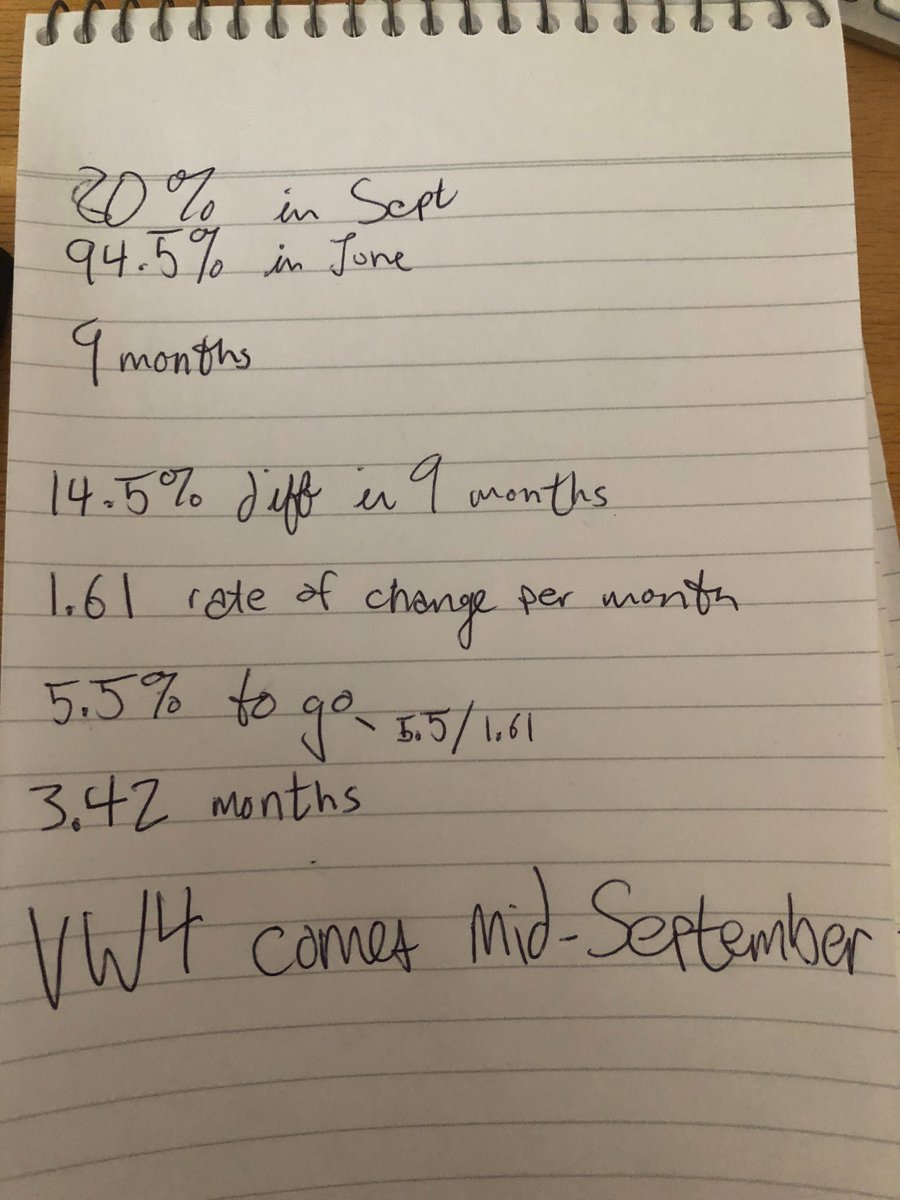 80% in Sept
94.5% in June
9 months
14.5% diff in 9 months
1.61 rate of change per month
5.5% to go 5.5/1.61
3.42 months
VW4 comes Mid-September